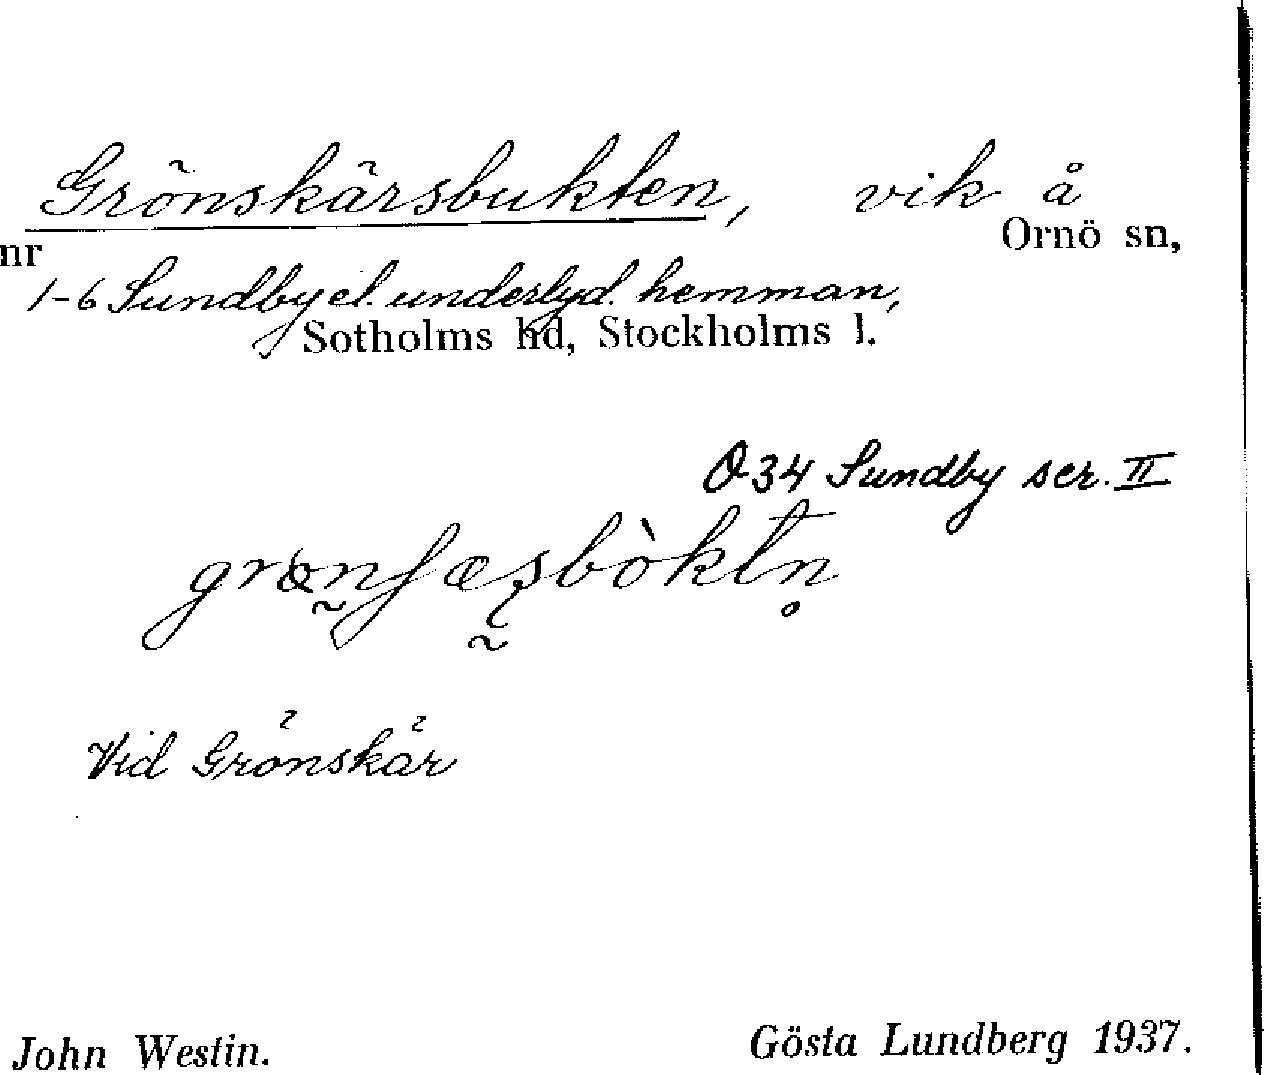 Grönskärsbukten, vik å
Ornö sn,
nr
1-6 Sundby el. underlyd. hemman,
Sotholms hd, Stockholms l.
O 34 Sundby ser. II
Vid Grönskär
John Westin.
Gösta Lundberg 1937.